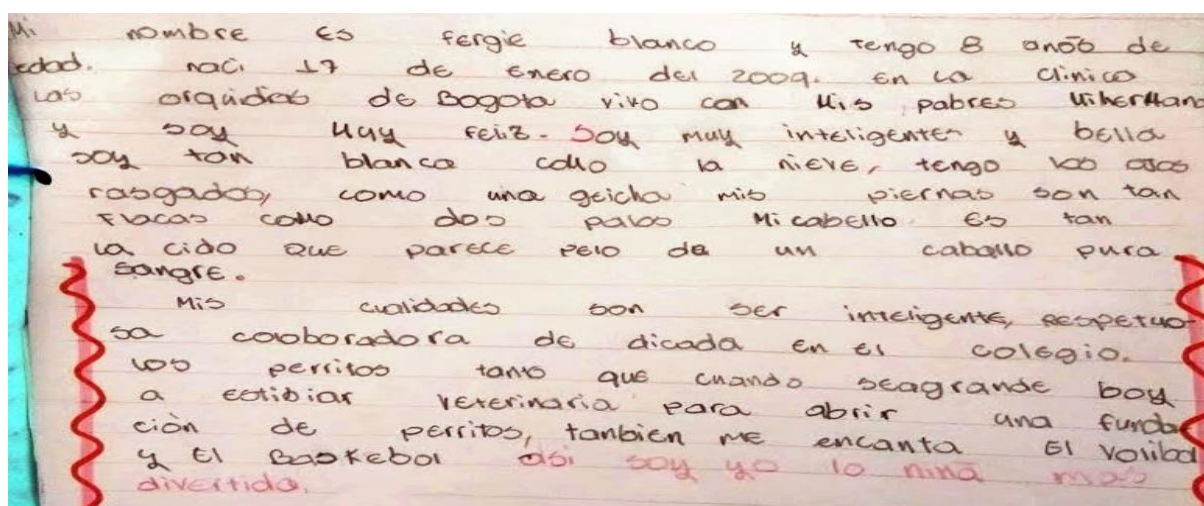 Mi nombre es fergie blanco y tengo 8 anõs de
edad. naci 17 de Enero del 2009. En la clinica
Las orquidias de Bogota vivo con Mis pabres Miherman
y soy Muy feliz. Soy muy inteligente y bella
soy tan blanca como la nieve, tengo los ojos
rasgados, como una geicha mis piernas son tan
Flacas como dos palos Mi cabello Es tan
la cido que parece pelo de un caballo pura
sangre.
Mis cualidades son ser inteligente, Respetuo-
sa cooboradora de dicada en el colegio.
los perritos tanto que cuando seagrande boy
a estibiar veterinaria para abrir una funda
ción de perritos, tanbien me encanta El volibol
y El Baskebol asi soy yo la niña mas
divertida.